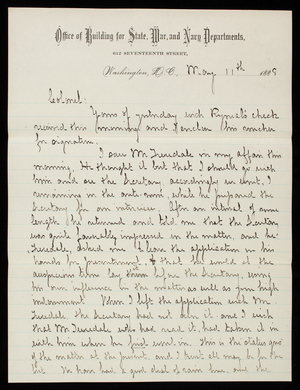 Office of Building for State, War, and Navy Departments,
612 SEVENTEENTH STREET,
Washington, D.C., May 11th 1885
Colonel:
Yours of yesterday with Rymel's check
received this morning and I enclose him voucher
for signature.
I saw Mr. Truesdale in my affair this
morning. He thought it best that I should go with
him and see the Secretary accordingly we went, I
remaining in the ante-room, while he prepared the
Secretary for an interview. After an interval of some
length he returned and told me that the Secretary
was quite favorably impressed in the matter, and he
Truesdale, asked me to leave the application in his
hands for presentment, & that he would at the
auspicious time lay it before the Secretary, using
his own influence in the matter as well as your high
indorsement. When I left the application with Mr.
Truesdale the Secretary had not seen it and I wish
that Mr. Truesdale, who had read it, had taken it in
with him when he first went in. This is the status quo
of the matter at the present, and I trust all may be for the
best. We have had a good deal of rain here, and the